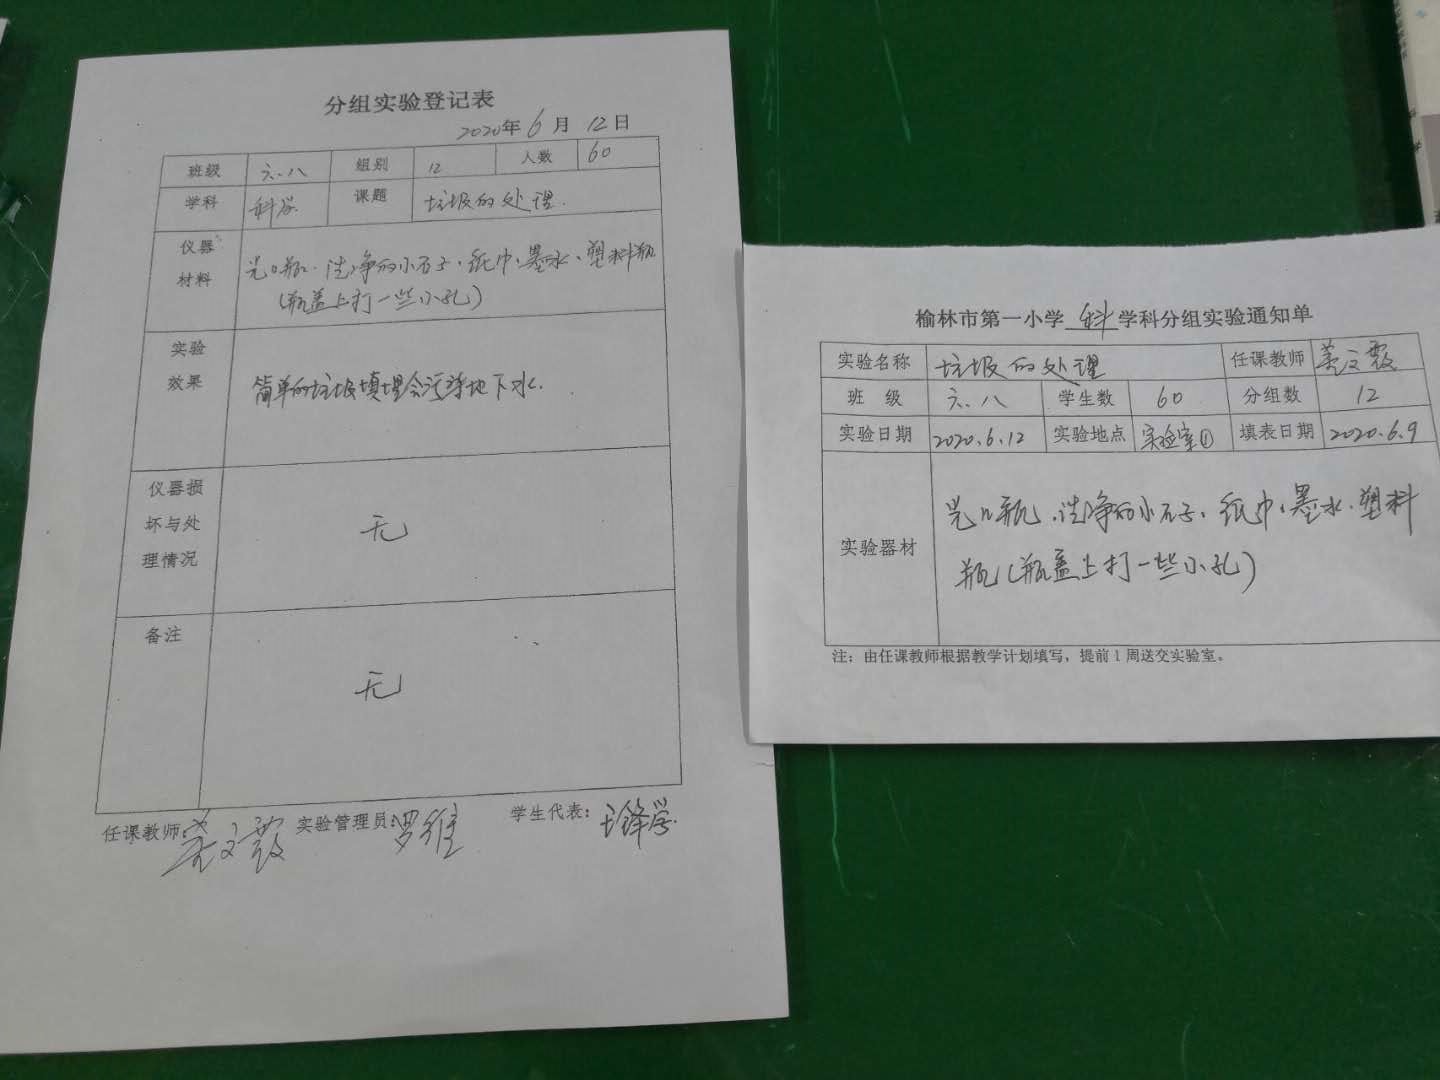 分组实验登记表
2020年6月12日
班级 六.八 组别 12 人数 60
学科 科学 课题 垃圾的处理.
仪器
材料
光口瓶、洗净的小石子、纸巾、墨水、塑料瓶
(瓶盖上打一些小孔)
实验
效果
简单的垃圾填埋会污染地下水.
仪器损
坏与处
理情况
无
备注
无
任课教师: 文霞 实验管理员:罗维 学生代表:
榆林市第一小学 科 学科分组实验通知单
实验名称 垃圾的处理 任课教师 文霞
班 级 六.八 学生数 60 分组数 12
实验日期 2020.6.12 实验地点 实验室① 填表日期 2020.6.9
实验器材
光口瓶、洗净的小石子、纸巾、墨水、塑料
瓶(瓶盖上打一些小孔)
注：由任课教师根据教学计划填写，提前1周送交实验室。